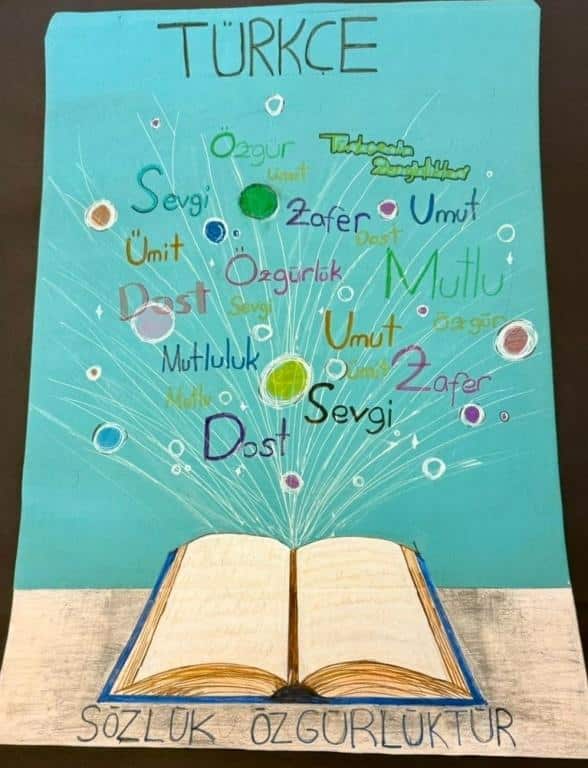 TÜRKÇE
Özgür
Türkçenin
Zenginlikleri
Umut
Sevgi
Zafer
Umut
Dost
Ümit
Özgürlük
Mutlu
Dost
Sevgi
Umut
Özgür
Mutluluk
Ümit
Zafer
Mutlu
Sevgi
Dost
SÖZLÜK ÖZGÜRLÜKTÜR